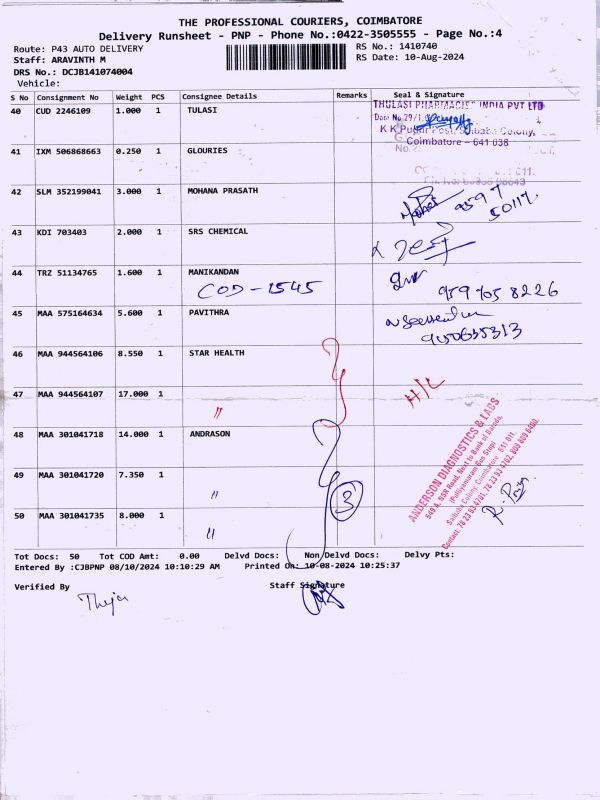 THE PROFESSIONAL COURIERS, COIMBATORE
Delivery Runsheet - PNP - Phone No.:0422-3505555 - Page No.:4
Route: P43 AUTO DELIVERY
RS No.: 1410740
Staff: ARAVINTH M
RS Date: 10-Aug-2024
DRS No.: DCJB141074004
Vehicle:
S No Consignment No Weight PCS Consignee Details Remarks Seal & Signature
40 CUD 2246109 1.000 1 TULASI
THULASI PHARMACIES INDIA PVT LTD
Door No.29/1,
K K Pudur Post, Saibaba Colony,
Coimbatore – 641 038
41 IXM 506868663 0.250 1 GLOURIES
42 SLM 352199041 3.000 1 MOHANA PRASATH
9597
50117.
43 KDI 703403 2.000 1 SRS CHEMICAL
44 TRZ 51134765 1.600 1 MANIKANDAN
COD - 1545
959 705 8226
45 MAA 575164634 5.600 1 PAVITHRA
46 MAA 944564106 8.550 1 STAR HEALTH
47 MAA 944564107 17.000 1 "
H/L
48 MAA 301041718 14.000 1 ANDRASON
49 MAA 301041720 7.350 1 "
3
50 MAA 301041735 8.000 1 "
ANDERSON DIAGNOSTICS & LABS
549 A, NSR Road, Next to Bank of Baroda,
(Pulliyamaram Bus Stop)
Saibaba Colony, Coimbatore 641 011.
R. Priya
Tot Docs: 50 Tot COD Amt: 0.00 Delvd Docs: Non Delvd Docs: Delvy Pts:
Entered By :CJBPNP 08/10/2024 10:10:29 AM Printed On: 10-08-2024 10:25:37
Verified By Staff Signature